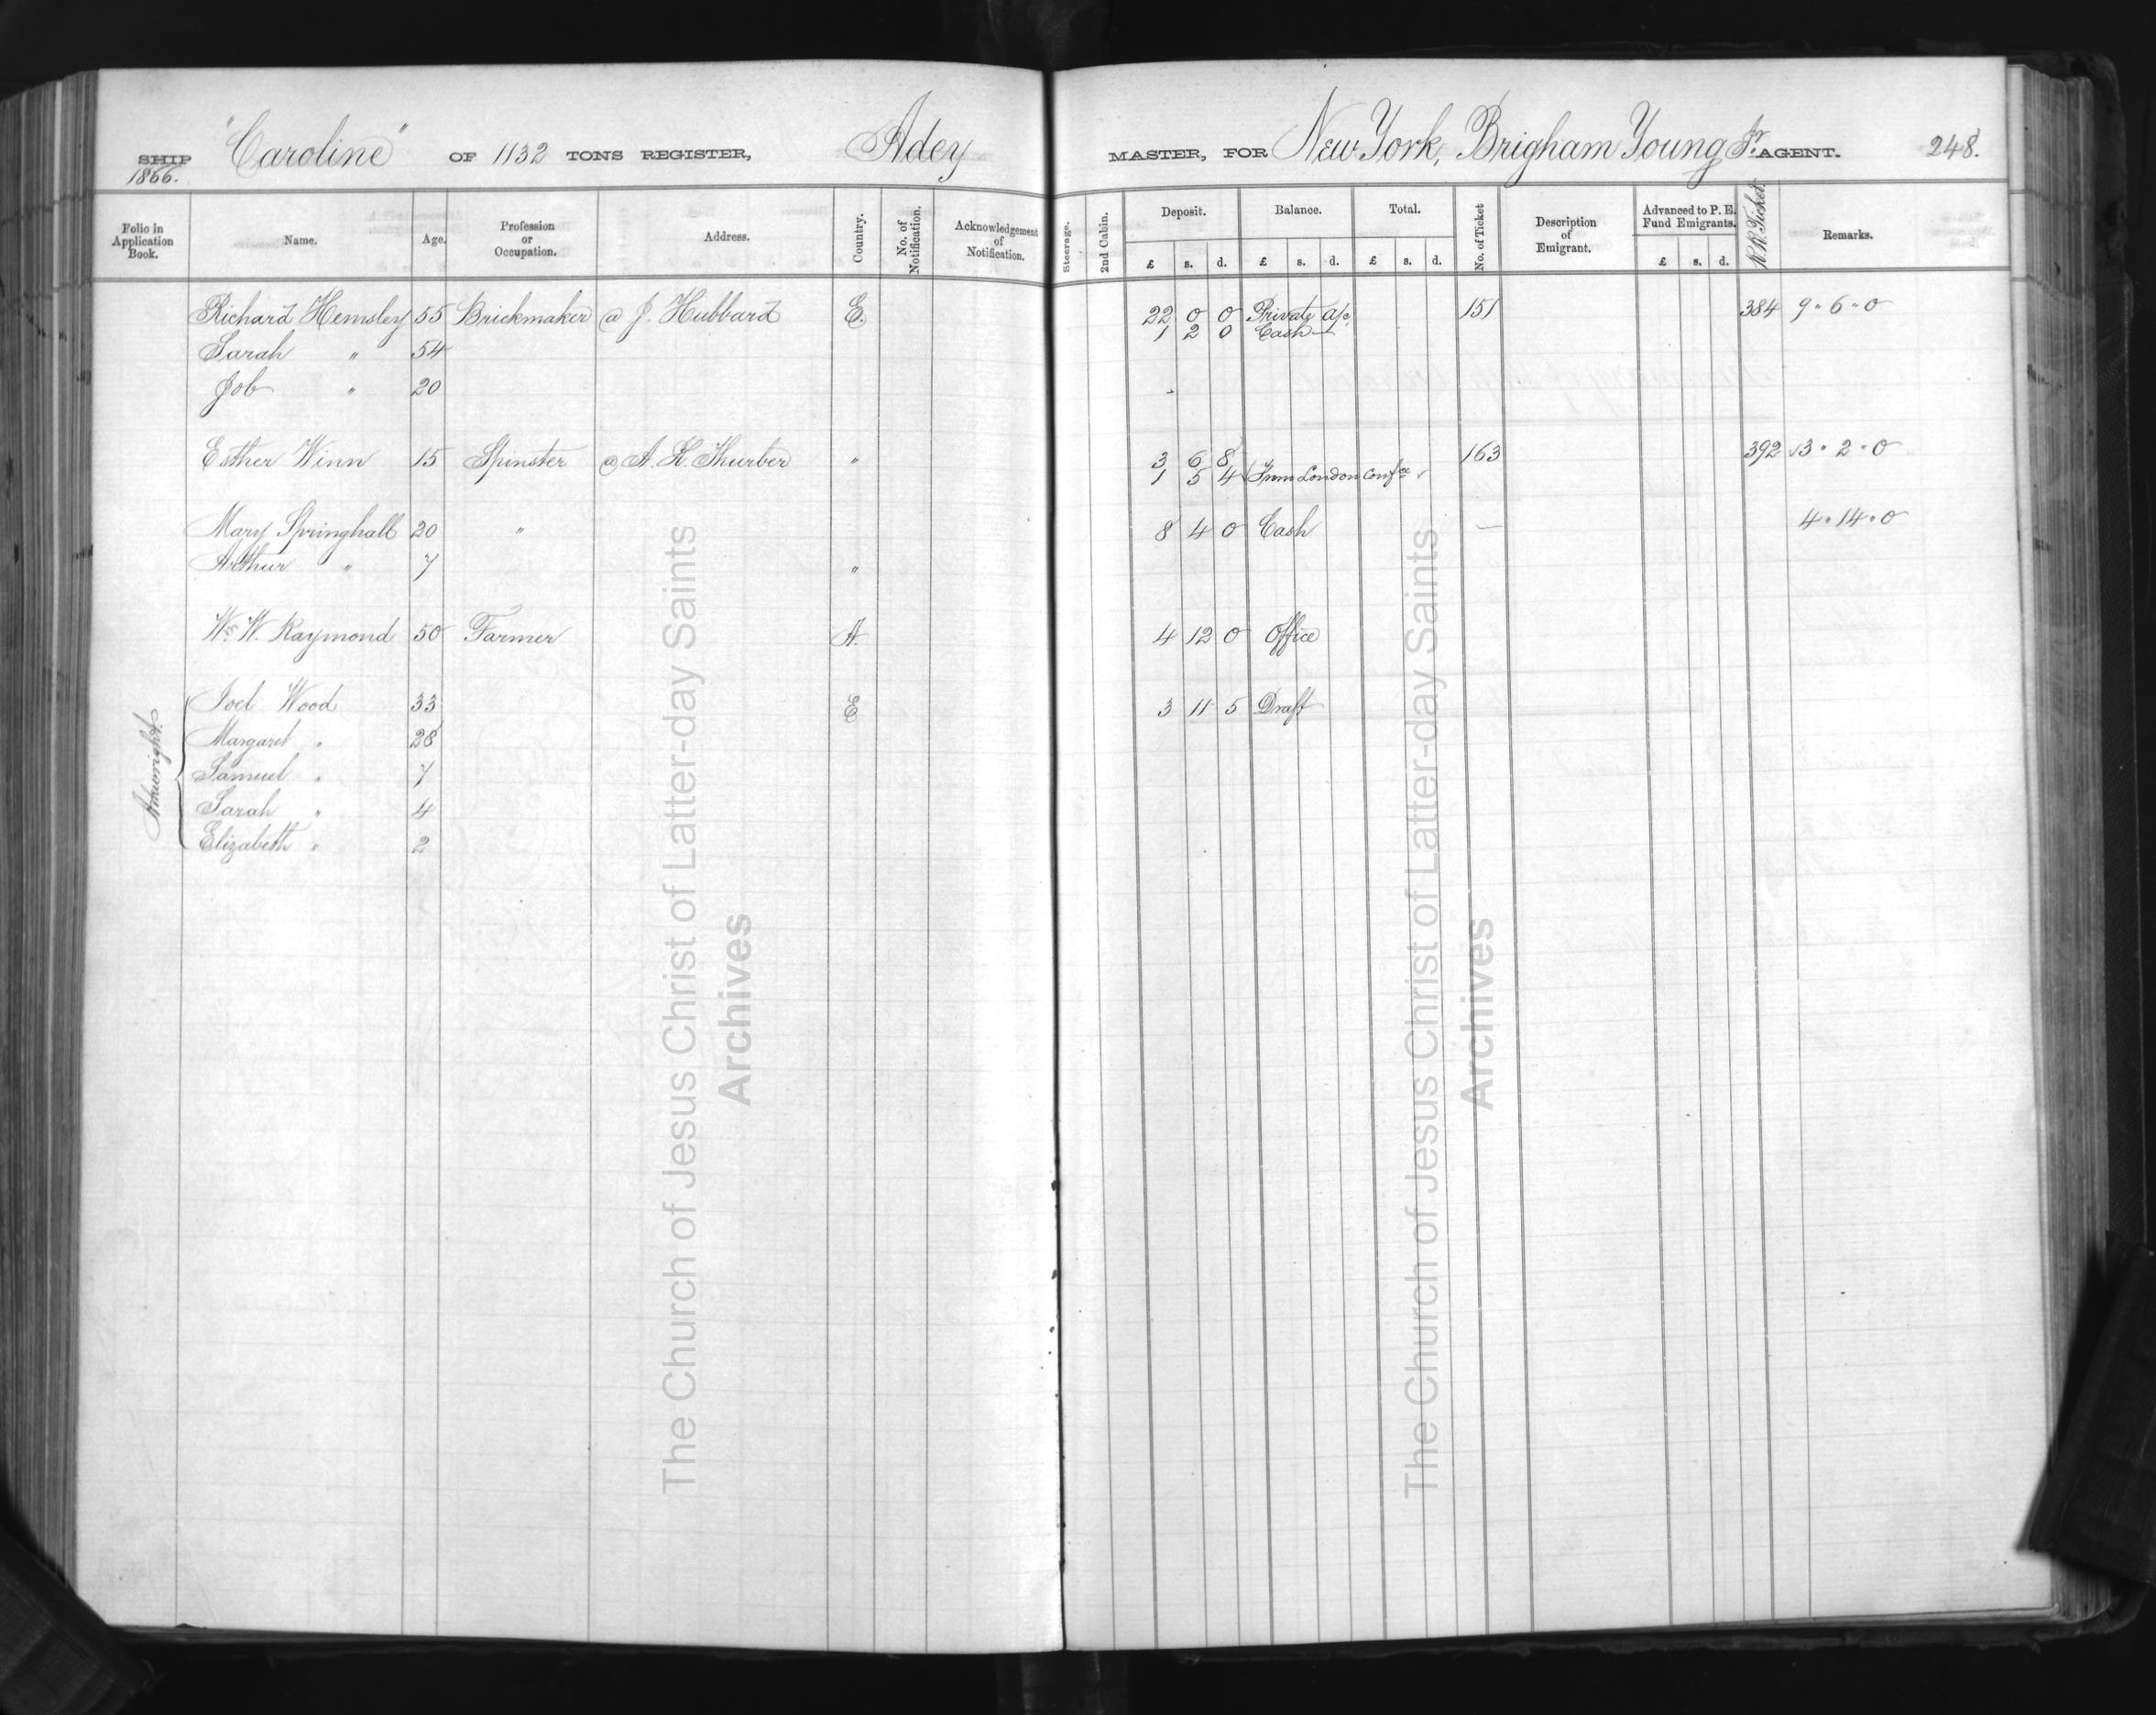 SHIP "Caroline" OF 1132 TONS REGISTER, Adey MASTER, FOR New York, Brigham Young Jr. AGENT. 248.
1866.
Folio in Application Book. Name. Age. Profession or Occupation. Address. Country. No. of Notification. Acknowledgement of Notification. Steerage. 2nd Cabin. Deposit. Balance. Total. No. of Ticket Description of Emigrant. Advanced to P. E. Fund Emigrants. R.R. Ticket. Remarks.
£ s. d. £ s. d. £ s. d. £ s. d.
Richard Hemsley 55 Brickmaker @ J. Hubbard E. 22 0 0 Private a/c 151 384 9 " 6 " 0
1 2 0 Cash
Sarah " 54
Job " 20
Esther Winn 15 Spinster @ A. K. Thurber " 3 6 8 163 392 3 " 2 " 0
1 5 4 From London Confce
Mary Springhall 20 " 8 4 0 Cash — 4 " 14 " 0
Arthur " 7 "
Wm W. Raymond 50 Farmer A. 4 12 0 Office
Joel Wood 33 E 3 11 5 Draft
Margaret " 28
Samuel " 7
Sarah " 4
Elizabeth " 2
The Church of Jesus Christ of Latter-day Saints
Archives
The Church of Jesus Christ of Latter-day Saints
Archives